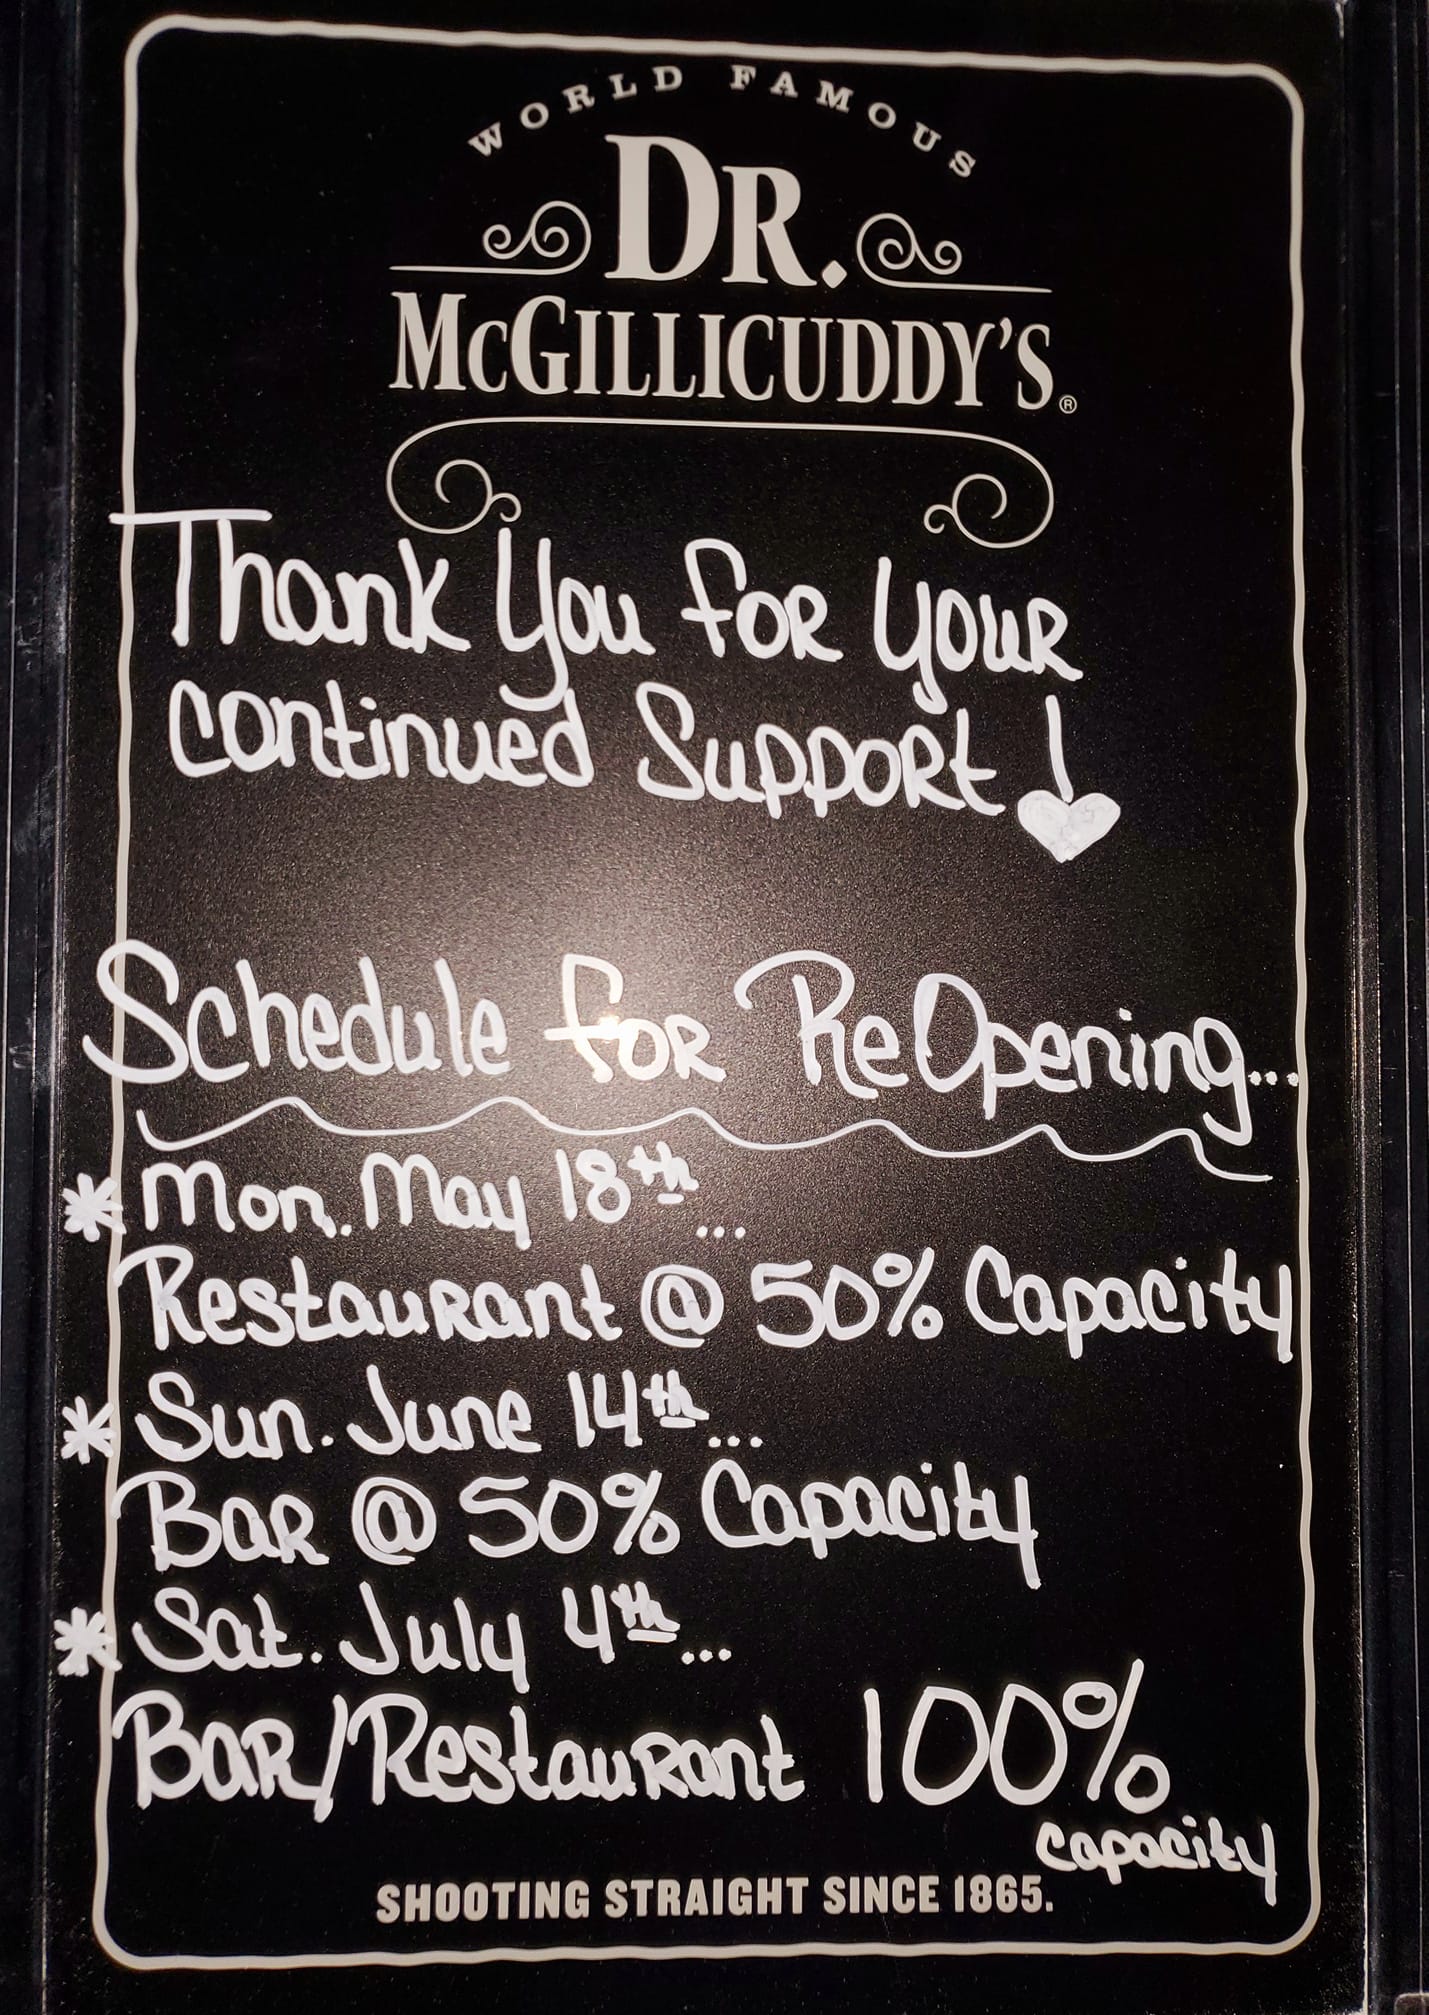 WORLD FAMOUS
DR.
MCGILLICUDDY'S®
Thank You for your
continued Support!
Schedule for ReOpening...
* Mon. May 18th...
Restaurant @ 50% Capacity
* Sun. June 14th...
Bar @ 50% Capacity
* Sat. July 4th...
Bar/Restaurant 100%
capacity
SHOOTING STRAIGHT SINCE 1865.